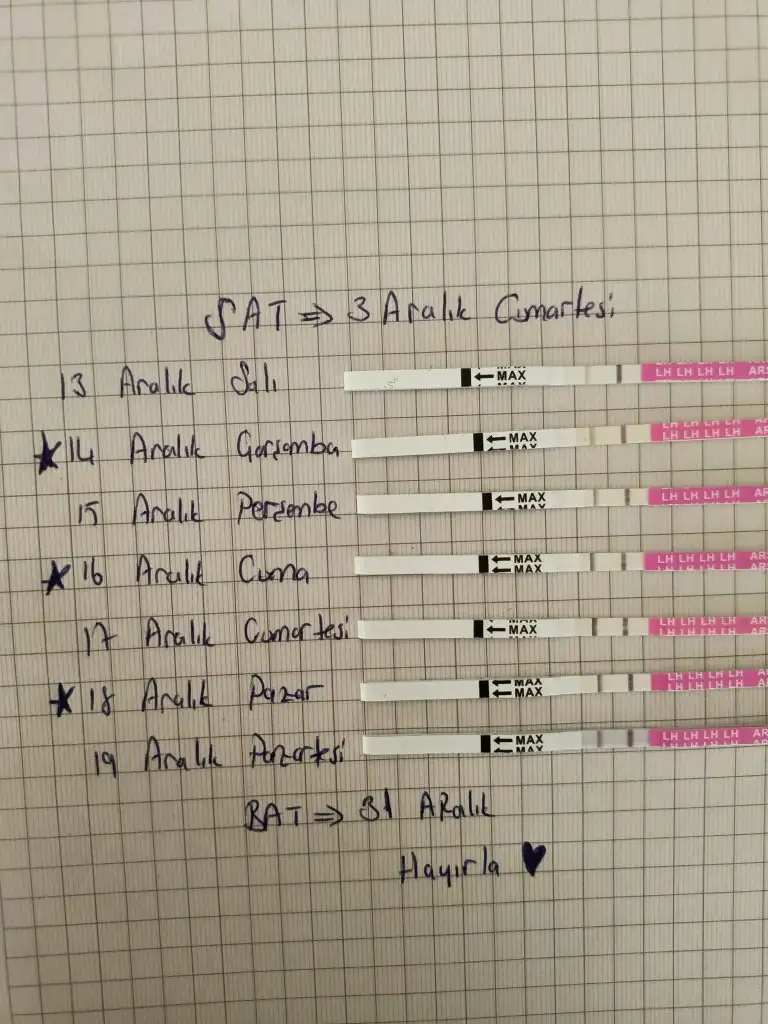 SAT ⇒ 3 Aralık Cumartesi
13 Aralık Salı ← MAX LH LH LH LH AR
★ 14 Aralık Çarşamba ← MAX LH LH LH LH AR
15 Aralık Perşembe ← MAX LH LH LH LH AR
★ 16 Aralık Cuma ← MAX ← MAX LH LH LH LH AR
17 Aralık Cumartesi ← MAX LH LH LH LH AR
★ 18 Aralık Pazar ← MAX ← MAX LH LH LH LH AR
19 Aralık Pazartesi ← MAX LH LH LH LH AR
BAT ⇒ 31 ARalık
Hayırla ♥